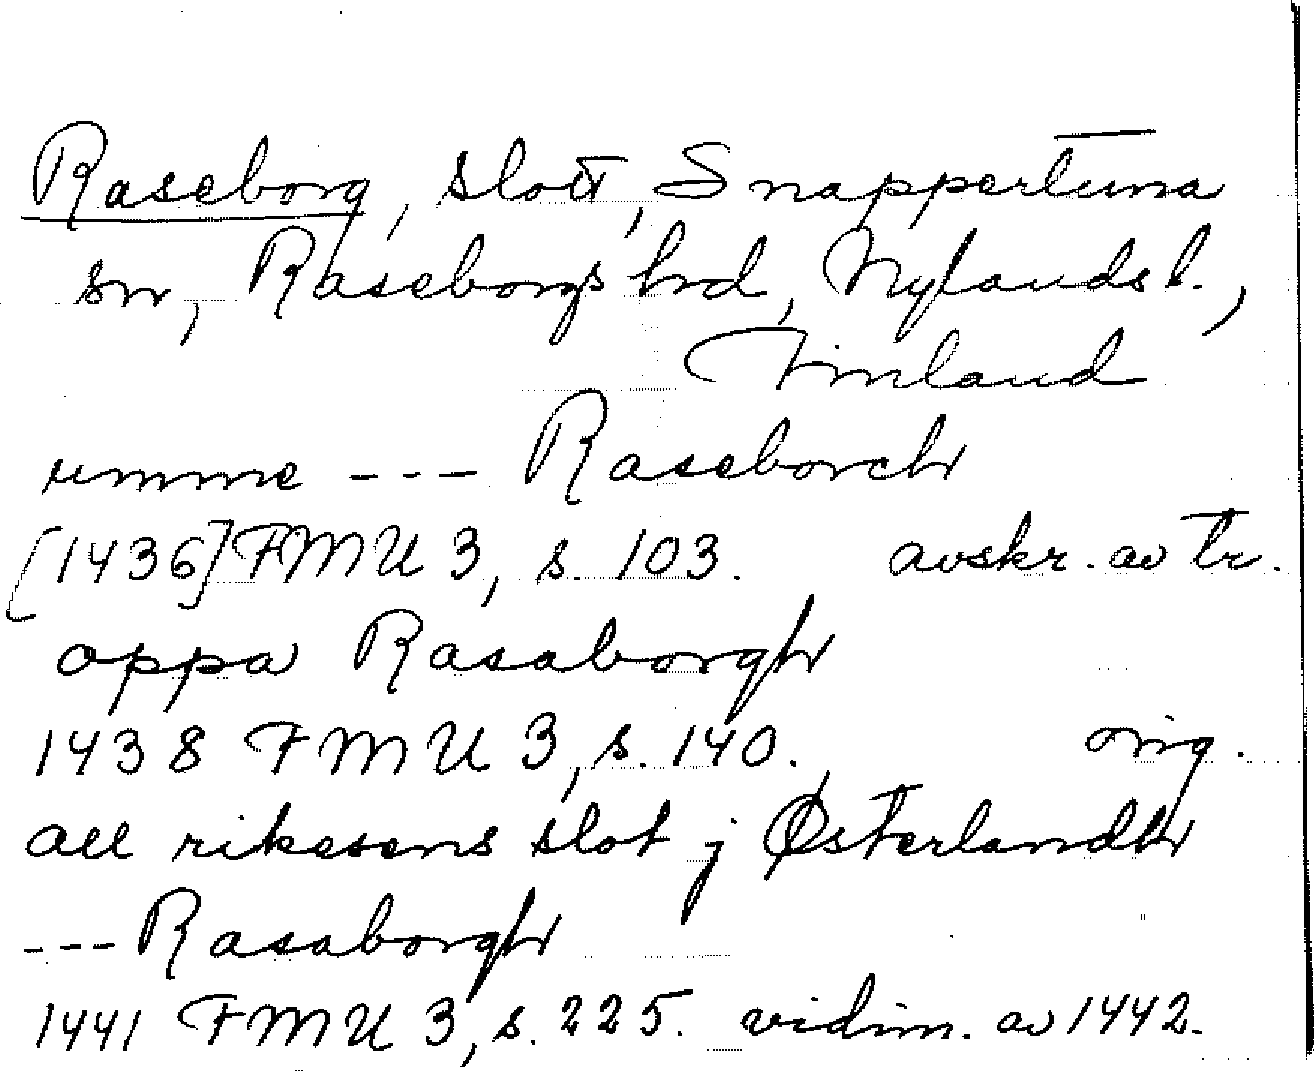 Raseborg, slott, Snappertuna
sn, Raseborgs hrd, Nylands l.,
Finland
umme --- Raseborch
[1436] FMU 3, s. 103. avskr. av tr.
oppa Rasaborgh
1438 FMU 3, s. 140. orig.
all rikesens slot j Østerlandh
--- Rasaborgh
1441 FMU 3, s. 225. vidim. av 1442.